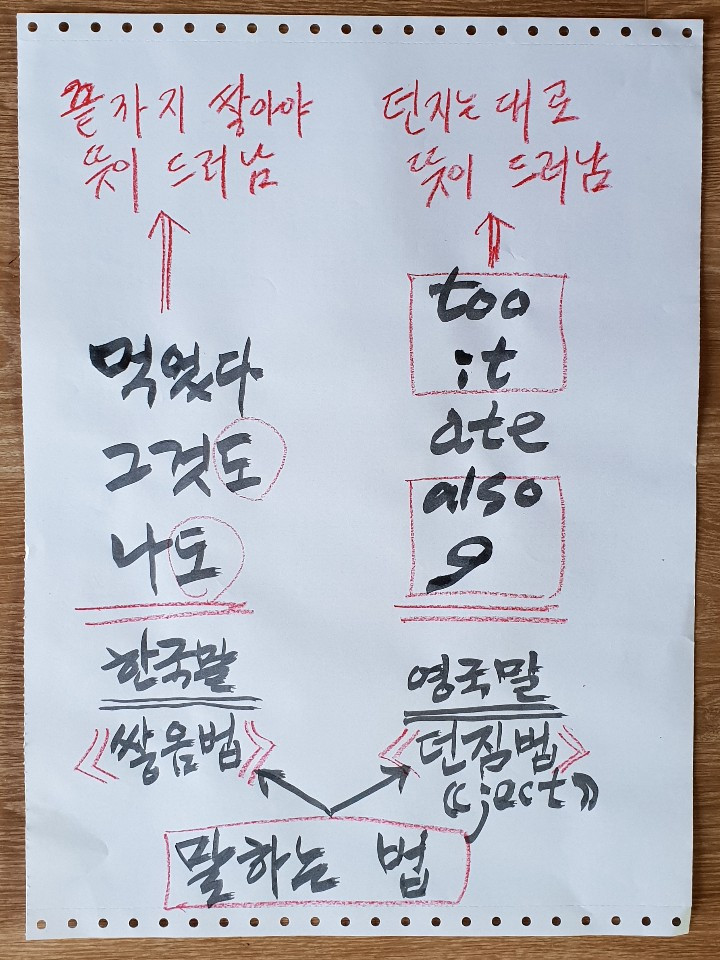 끝가지 쌓아야
뜻이 드러남
먹었다
그것도
나도
한국말
《쌓음법》
던지는대로
뜻이 드러남
too
it
ate
also
I
영국말
《던짐법》
《ject》
말하는 법